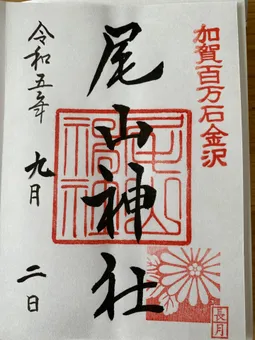 加賀百万石金沢
尾山神社
令和五年 九月 二日
尾山神社
長月